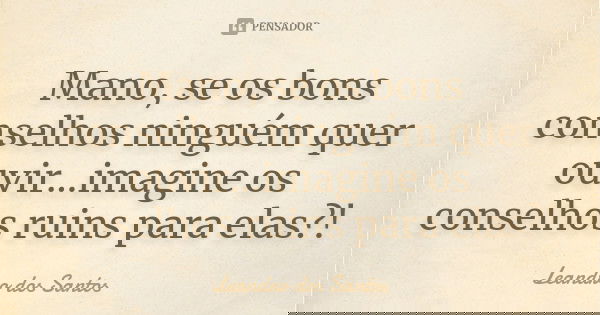 PENSADOR
Mano, se os bons
conselhos ninguém quer
ouvir...imagine os
conselhos ruins para elas?!
Leandro dos Santos